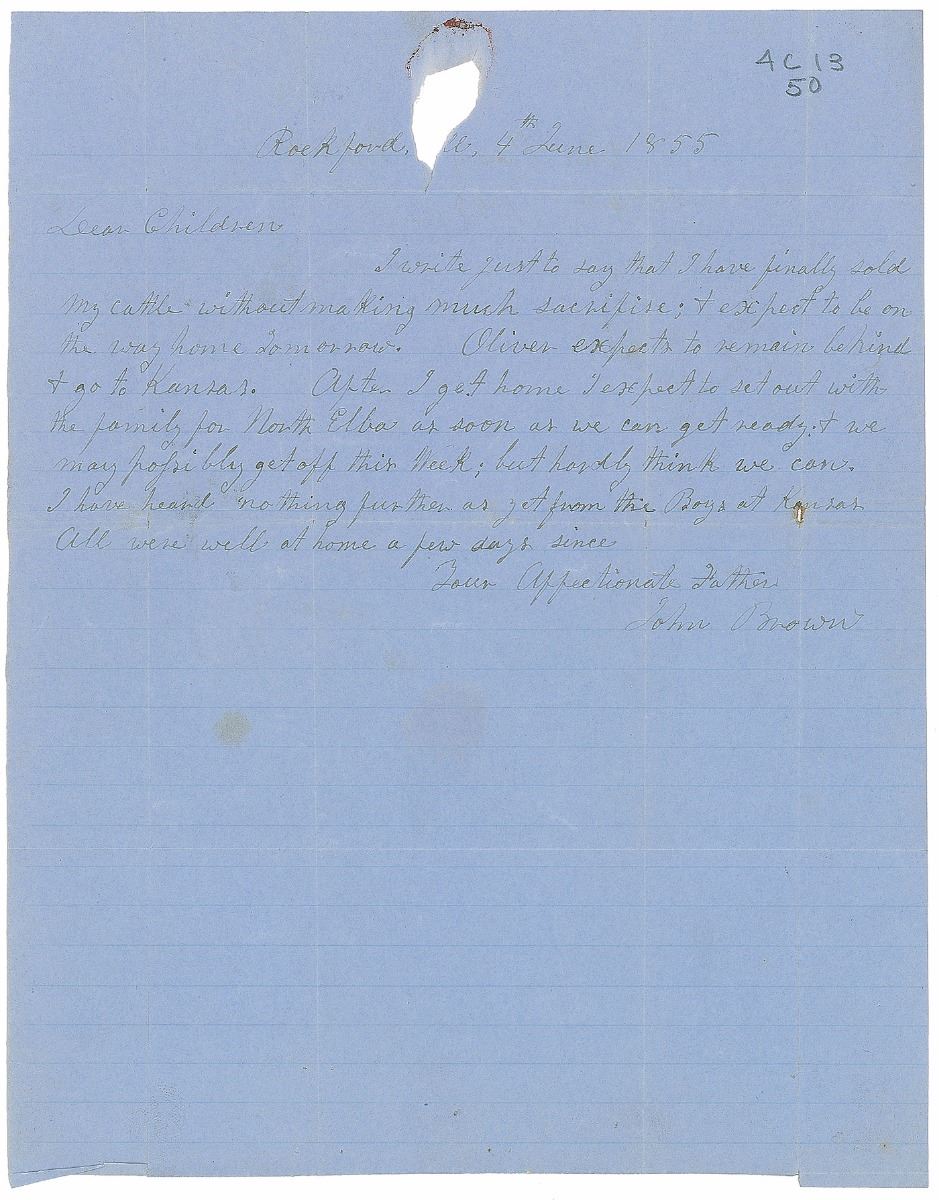 4C13
50
Rockford, Ill, 4th June 1855
Dear Children
I write just to say that I have finally sold
my cattle without making much sacrifise; & expect to be on
the way home tomorrow. Oliver expects to remain behind
& go to Kansas. After I get home I expect to set out with
the family for North Elba as soon as we can get ready: & we
may possibly get off this Week; but hardly think we can.
I have heard nothing further as yet from the Boys at Kansas
All were well at home a few days since
Your Affectionate Father
John Brown